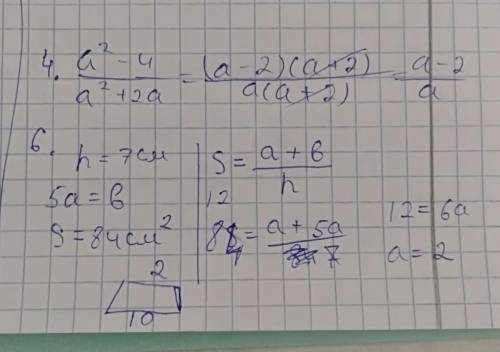 4. (a² - 4)/(a² + 2a) = ((a - 2)(a + 2))/(a(a + 2)) = (a - 2)/a
6.
h = 7см
5a = в
S = 84см²
2
10
S = (a + в)/h
12
84 = (a + 5a)/7
12 = 6a
a = 2